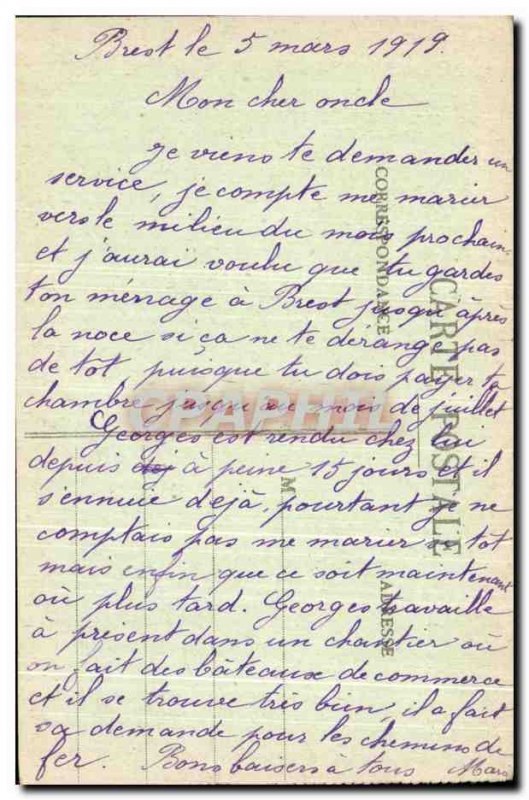 Brest le 5 mars 1919.
Mon cher oncle
Je viens te demander un
service, je compte me marier
vers le milieu du mois prochain
et j'aurai voulu que tu gardes
ton ménage à Brest jusqu'après
la noce si ça ne te dérange pas
de tôt puisque tu dois payer ta
chambre jusqu'au mois de juillet
Georges est rendu chez lui
depuis à peine 15 jours et il
s'ennuie déjà, pourtant je ne
comptais pas me marier si tôt
mais enfin que ce soit maintenant
où plus tard. Georges travaille
à présent dans un chantier où
on fait des bâteaux de commerce
et il se trouve très bien, il a fait
sa demande pour les chemins de
fer. Bons baisers à tous
CARTE POSTALE
CORRESPONDANCE
M
ADRESSE
CPAPHIL